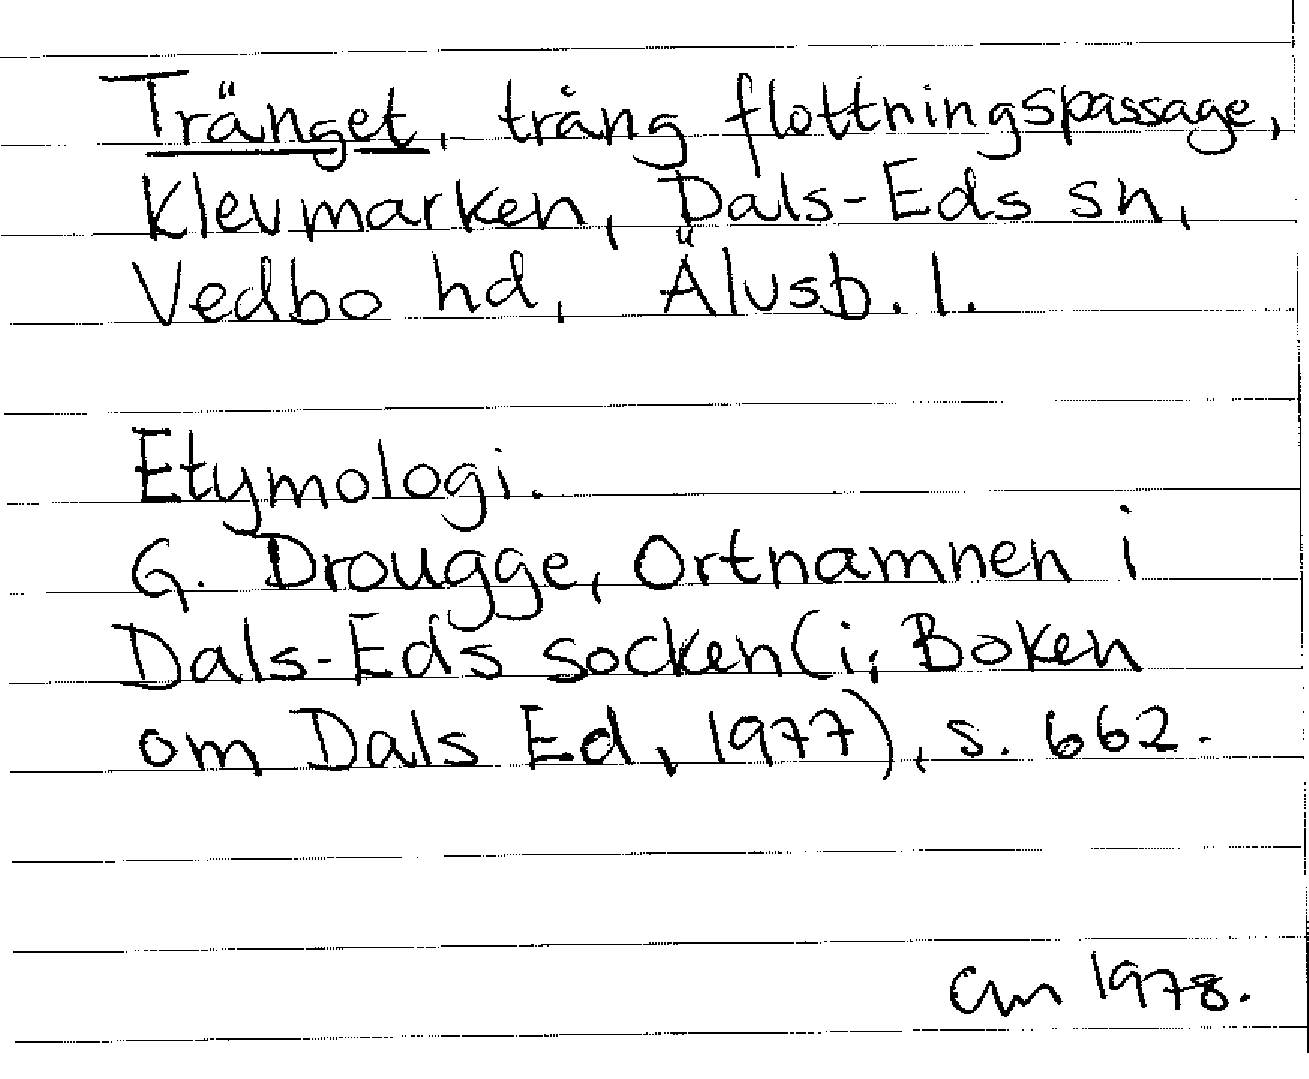 Tränget, trång flottningspassage,
Klevmarken, Dals-Eds sn,
Vedbo hd, Älvsb. l.
Etymologi.
G. Drougge, Ortnamnen i
Dals-Eds socken (i: Boken
om Dals Ed, 1977), s. 662.
CM 1978.